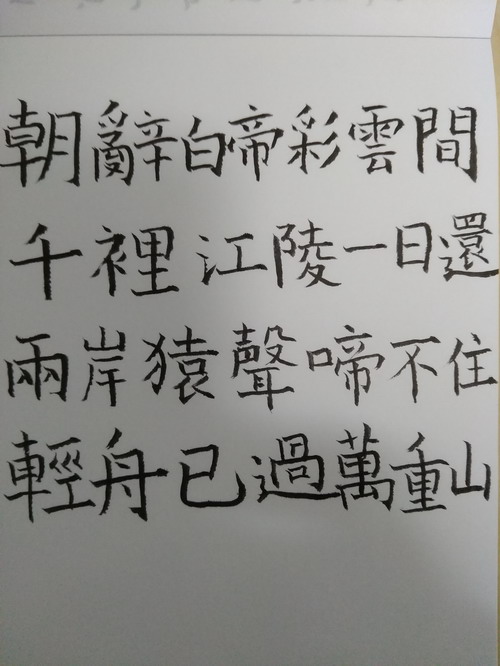 朝辭白帝彩雲間
千裡江陵一日還
兩岸猿聲啼不住
輕舟已過萬重山